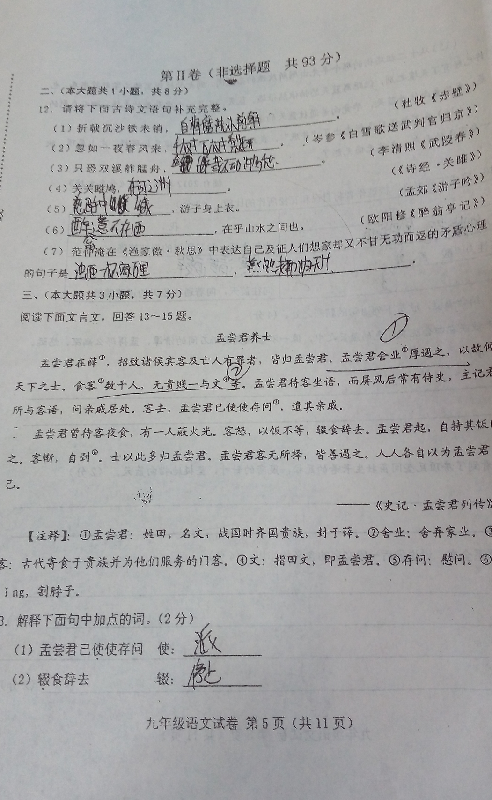 第Ⅱ卷（非选择题 共93分）
二、（本大题共1小题，共8分）
12. 请将下面古诗文语句补充完整。
（1）折戟沉沙铁未销，自将磨洗认前朝。（杜牧《赤壁》）
（2）忽如一夜春风来，千树万树梨花开。（岑参《白雪歌送武判官归京》）
（3）只恐双溪舴艋舟，载不动许多愁。（李清照《武陵春》）
（4）关关雎鸠，在河之洲。（《诗经·关雎》）
（5）慈母手中线，游子身上衣。（孟郊《游子吟》）
（6）醉翁之意不在酒，在乎山水之间也。（欧阳修《醉翁亭记》）
（7）范仲淹在《渔家傲·秋思》中表达自己及征人们想家却又不甘无功而返的矛盾心理
的句子是浊酒一杯家万里，燕然未勒归无计。
三、（本大题共3小题，共7分）
阅读下面文言文，回答13～15题。
孟尝君养士
①
孟尝君在薛①，招致诸侯宾客及亡人有罪者，皆归孟尝君，孟尝君舍业②厚遇之，以故倾
天下之士，食客③数千人，无贵贱一与文④等。孟尝君待客坐语，而屏风后常有侍史，主记君
所与客语，问亲戚居处。客去，孟尝君已使使存问⑤，遗其亲戚。
孟尝君曾待客夜食，有一人蔽火光。客怒，以饭不等，辍食辞去。孟尝君起，自持其饭比
之。客惭，自刭⑥。士以此多归孟尝君。孟尝君客无所择，皆善遇之，人人各自以为孟尝君
己。
——《史记·孟尝君列传》
【注释】：①孟尝君：姓田，名文，战国时齐国贵族，封于薛。②舍业：舍弃家业。③
客：古代寄食于贵族并为他们服务的门客。④文：指田文，即孟尝君。⑤存问：慰问。⑥
ing，割脖子。
3. 解释下面句中加点的词。（2分）
（1）孟尝君已使使存问 使：派
（2）辍食辞去 辍：停止
九年级语文试卷 第5页（共11页）